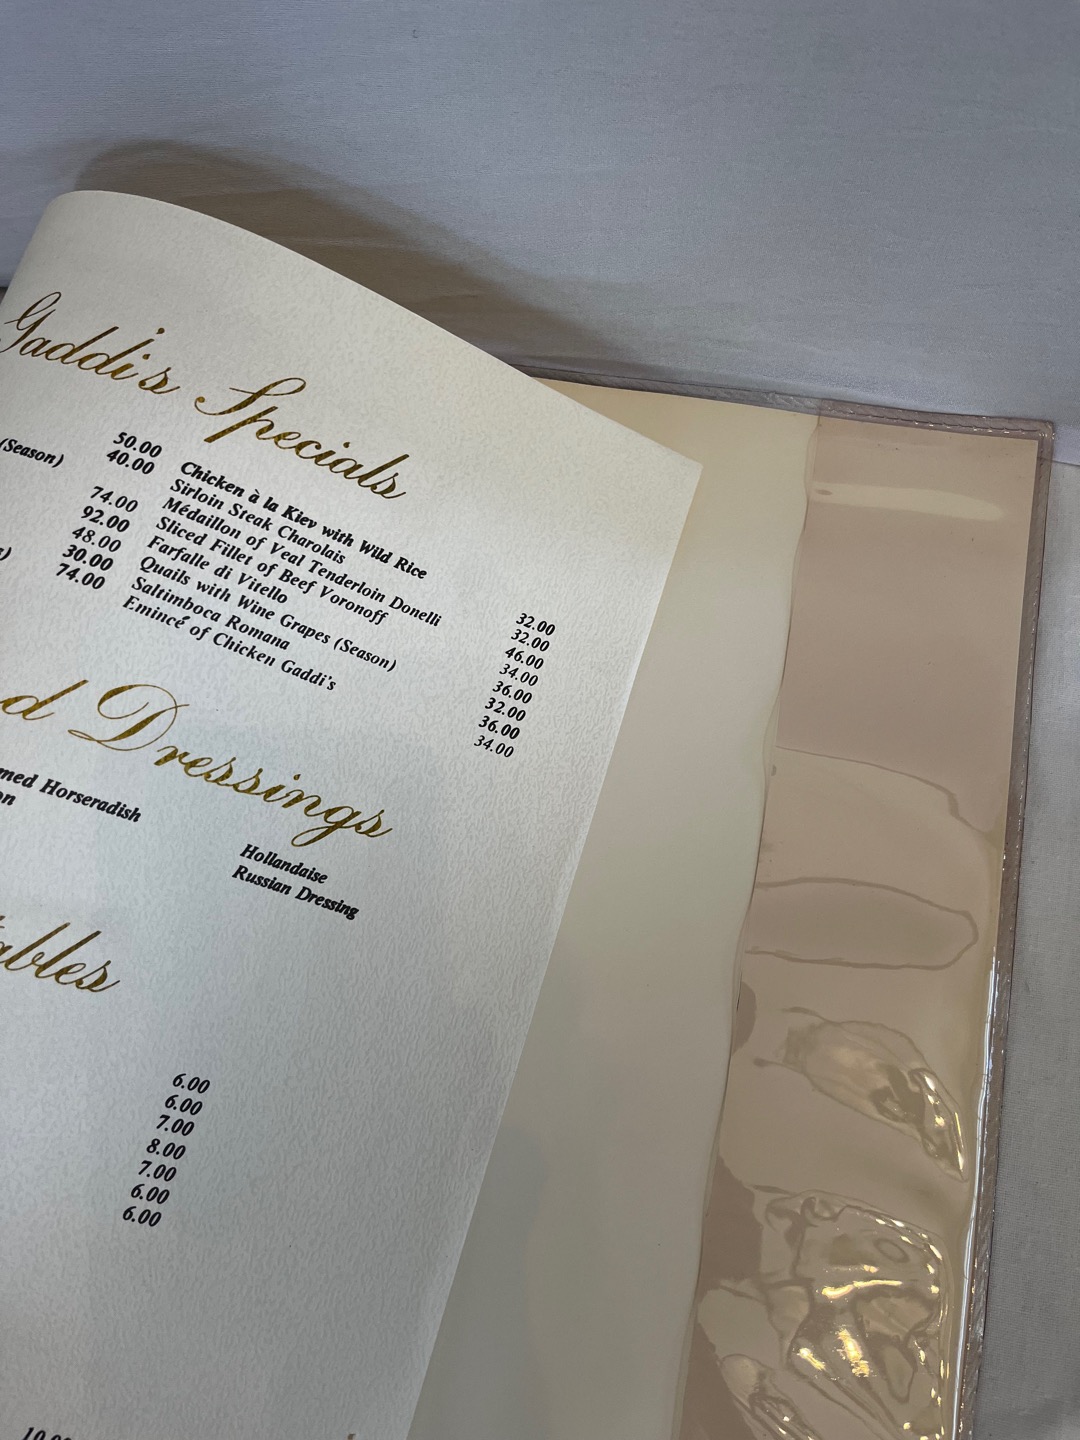 Gaddi's Specials
50.00
(Season) 40.00
74.00
92.00
48.00
30.00
74.00
Chicken à la Kiev with Wild Rice 32.00
Sirloin Steak Charolais 32.00
Médaillon of Veal Tenderloin Donelli 46.00
Sliced Fillet of Beef Voronoff 34.00
Farfalle di Vitello 36.00
Quails with Wine Grapes (Season) 32.00
Saltimboca Romana 36.00
Emincé of Chicken Gaddi's 34.00
d Dressings
med Horseradish
on
Hollandaise
Russian Dressing
ables
6.00
6.00
7.00
8.00
7.00
6.00
6.00